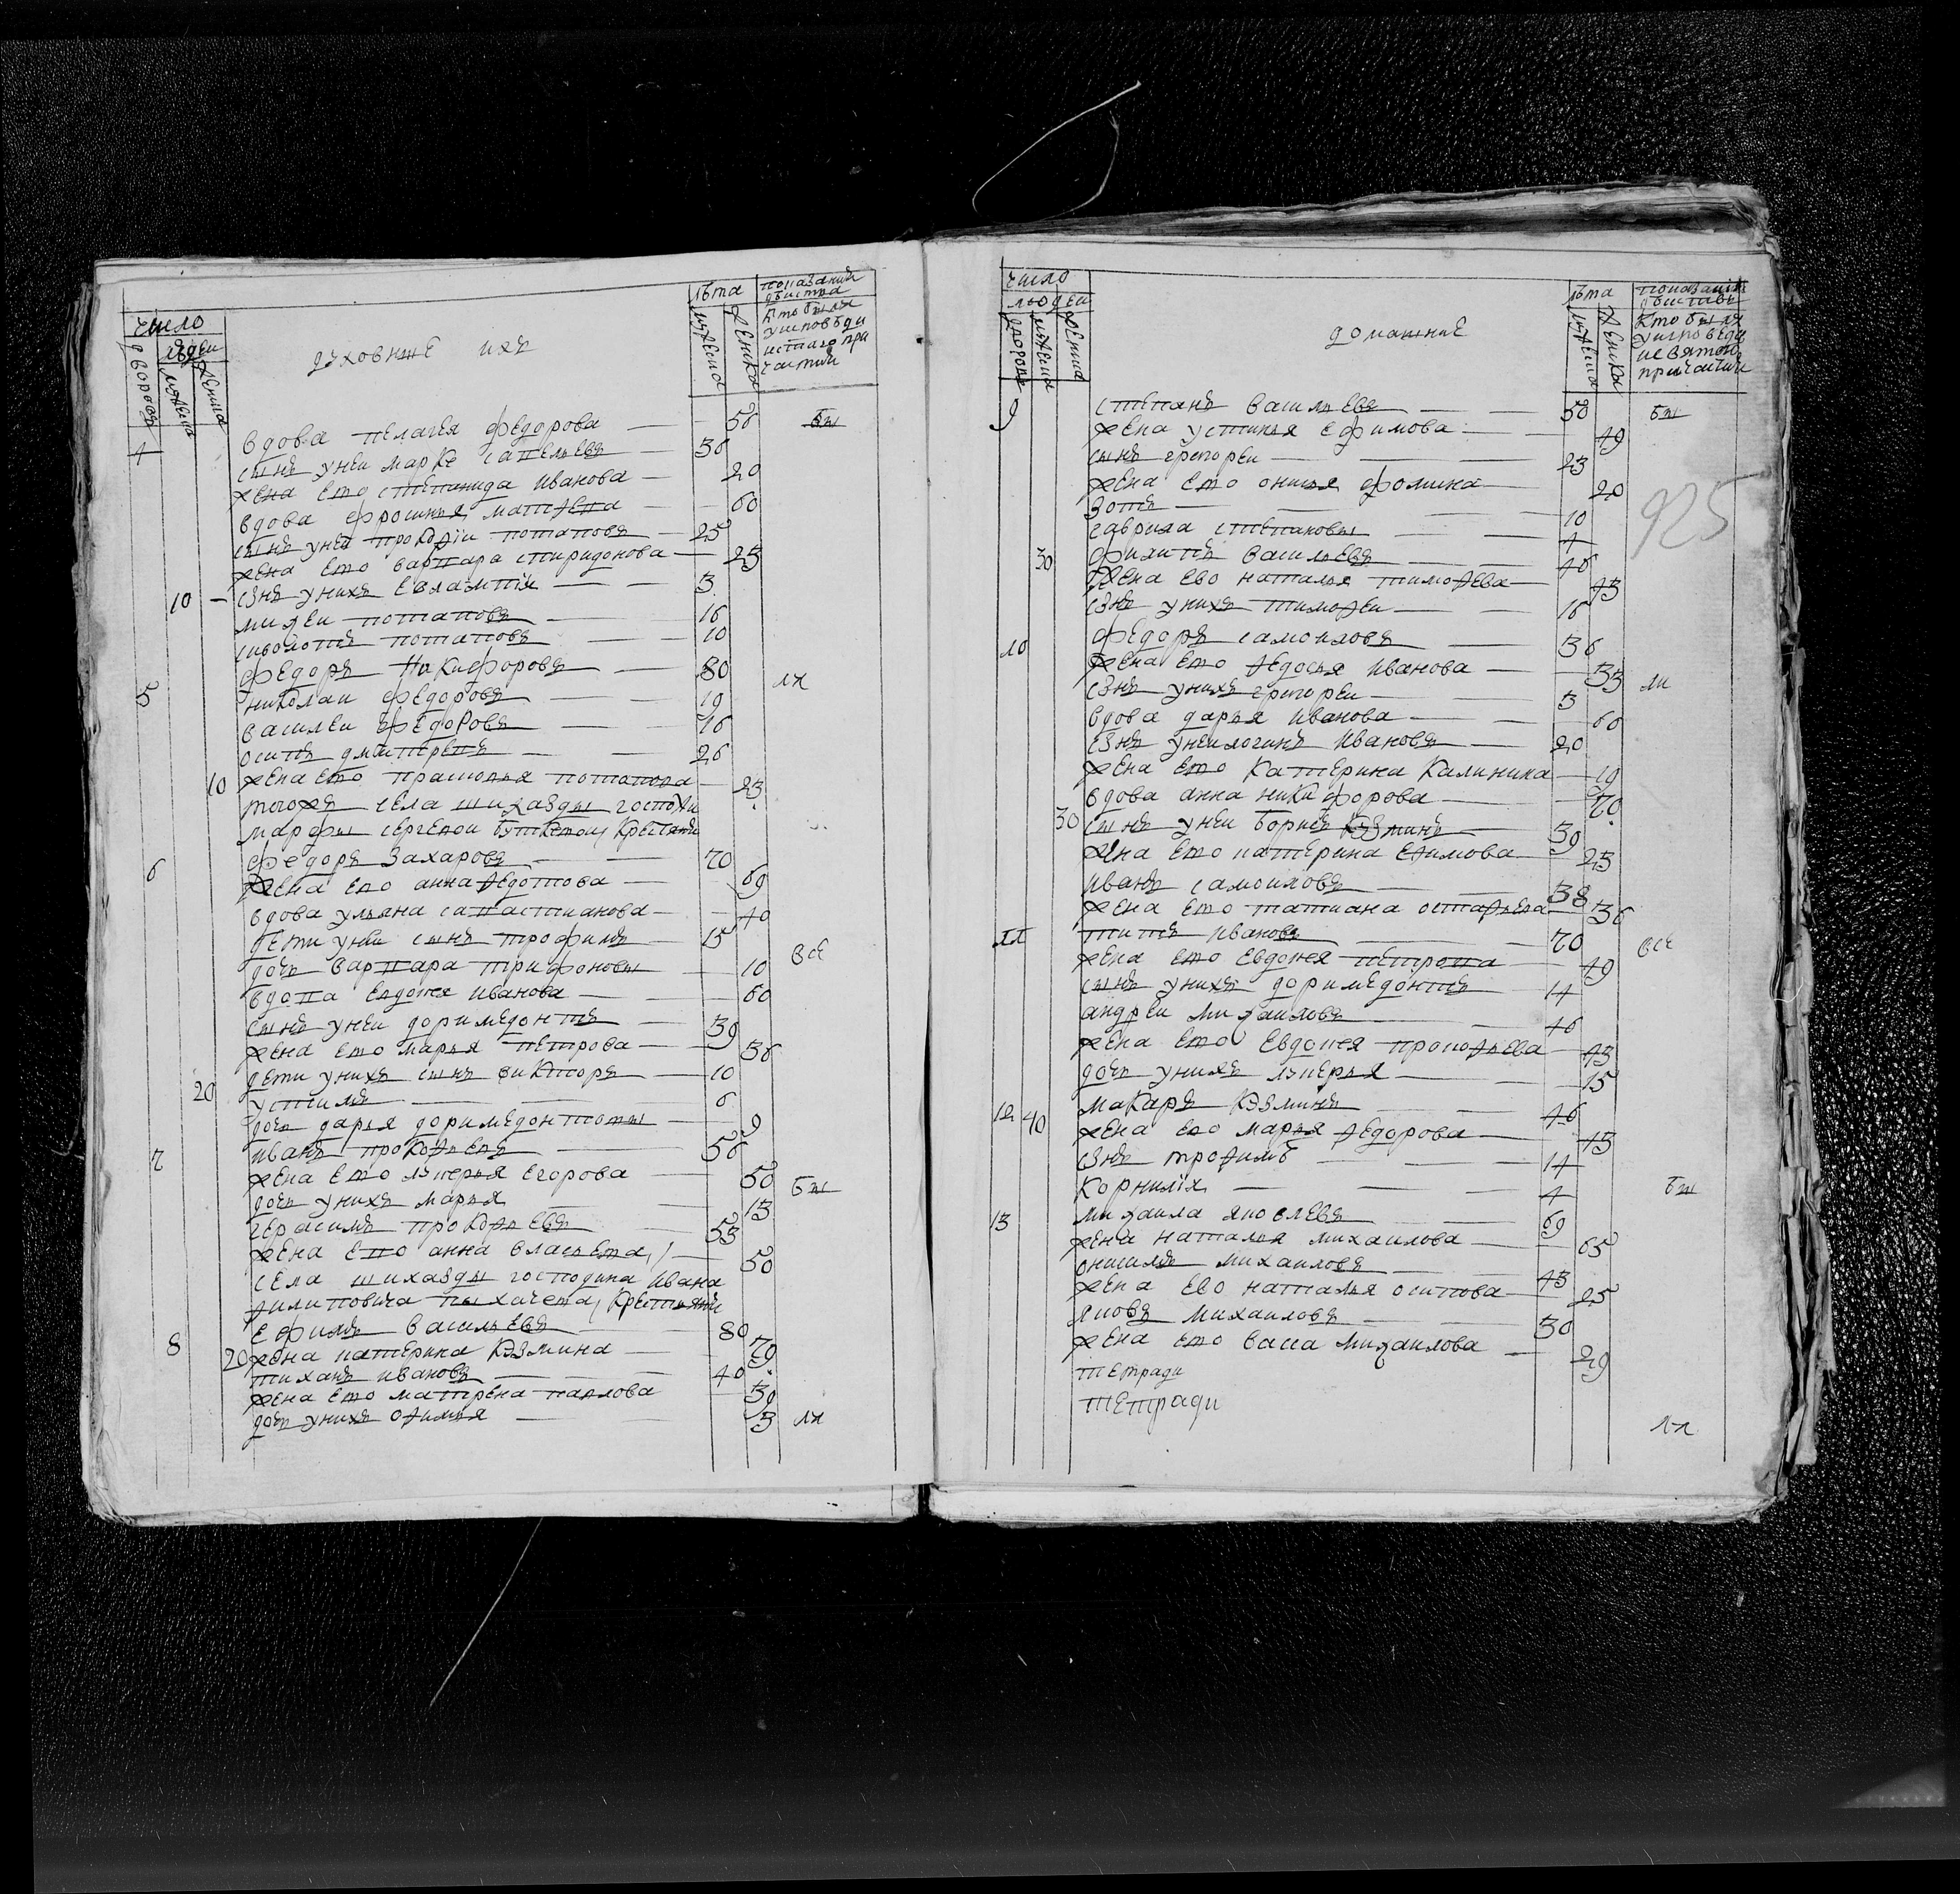 число
людей
дворовъ
мужеска
женска
духовные ихъ
лѣта
мужеска
женска
показаніи
дѣйства
кто былъ
у исповѣди
и с̃таго при
частія
4 вдова пелагея федорова — 56 бы
сынъ унеи марке савельевъ — 36
жена ево степанида иванова — 20
вдова фросинья матѳева — 60
сынъ унеи прокоѳіи потаповъ — 25
жена ево варвара спиридонова — 23
10 — сзнъ унихъ евлампіи — 3
михеи потаповъ — 16
потаповъ — 10
5 федоръ никифоровъ — 80 ли
николаи федоровъ — 19
василеи федоровъ — 16
осипъ дмитревъ — 26
10 жена ево прасковья потапова — 23
тогожъ села шихазды госпожи
марфы сергевои крестьяне
6 федоръ захаровъ — 70
жена ево анна ѳедотова — 69
вдова ульяна савастианова — 40
дети унеи сынъ трофимъ — 15
дочь варвара трифоновы — 10 все
вдова евдокея иванова — 60
сынъ унеи доримедонтъ — 39
жена ево марья петрова — 36
дети унихъ сынъ викторъ — 10
20 устимъ — 6
дочь дарья доримедонтовы — 9
7 иванъ прокоѳьевъ — 56
жена ево лукерья егорова — 50
дочь унихъ марья 13 бы
герасимъ прокоѳьевъ — 53
жена ево анна власьева — 50
села шихазды господина ивана
ѳилиповича крестьяне
8 ефимъ васильевъ — 80
20 жена катерина кузмина — 79
тиханъ ивановъ — 40
жена ево матрена павлова 39
дочь унихъ оѳимья — 3 ли
число
людеи
дворовъ
мужеска
женска
домашние
лѣта
мужеска
женска
показаніи
дѣиства
кто былъ
у исповеди
и святого
причастія
9 степанъ васильевъ — 50 бы
жена устинья ефимова — 49
сынъ григореи — 23
жена ево онисья фомина — 20
925
зотъ — 10
гаврила степановы — 4
30 филипъ васильевъ — 46
жена ево наталья тимоѳева — 43
сзнъ унихъ тимоѳеи — 16
10 федоръ самоиловъ — 36
жена ево ѳедосья иванова — 33 ли
сзнъ унихъ григореи — 3
вдова дарья иванова — 60
сзнъ унеи логинъ ивановъ — 20
жена ево катерина калинина — 19
вдова анна никифорова — 70
30 сынъ унеи борисъ кузминъ — 39
жена ево катерина еѳимова — 23
иванъ самоиловъ — 38
жена ево татиана остаѳьева — 36
11 титъ ивановъ — 70 все
жена ево евдокея петрова — 49
сынъ унихъ доримедонтъ — 14
андреи михаиловъ — 46
жена ево евдокея прокоѳьева — 43
дочь унихъ лукерья — 15
12 40 макаръ кузминъ — 46
жена ево марья ѳедорова — 43
сзнъ троѳимъ — 14
корнилїя — 4 бы
13 михаила яковлевъ — 69
жена наталья михаилова — 65
онисимъ михаиловъ — 43
жена ево наталья осипова — 25
яковъ михаиловъ — 30
жена ево васса михаилова — 29
тетради
тетради
ли